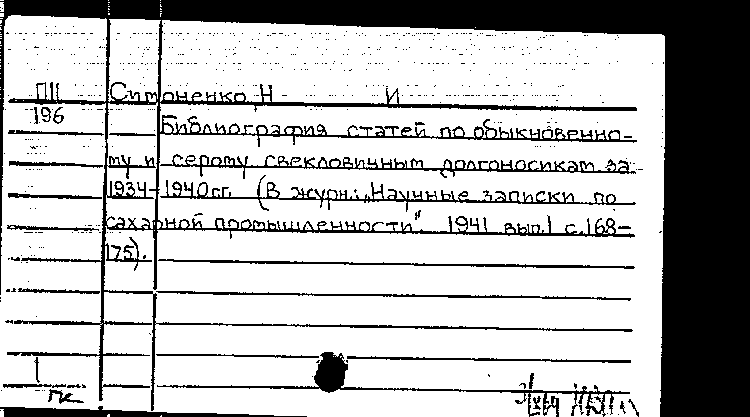 П11 Симоненко, Н И
196
Библиография статей по обыкновенно-
му и серому свекловичным долгоносикам за
1934-1940 гг. (В журн.: „Научные записки по
сахарной промышленности". 1941 вып.1 с.168-
175).
ГК